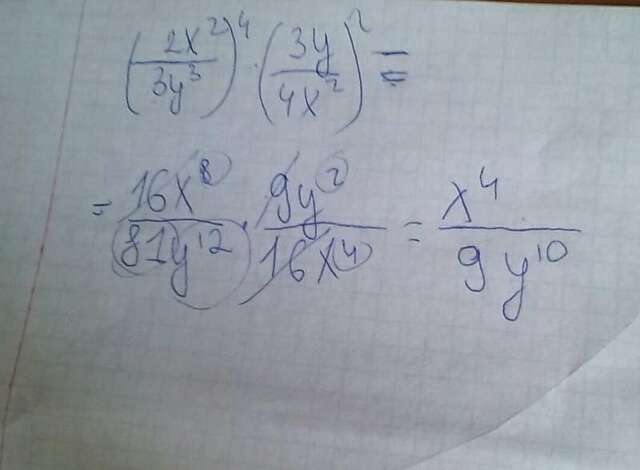 (2x²/3y³)⁴ · (3y/4x²)² =
= 16x⁸/81y¹² · 9y²/16x⁴ = x⁴/9y¹⁰